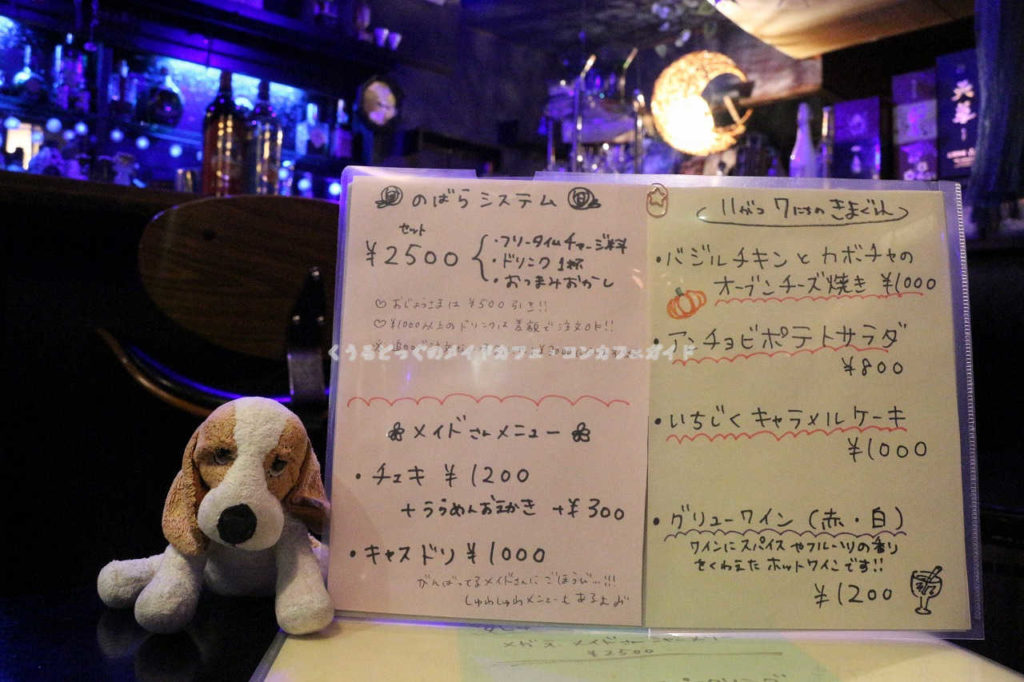 のばらシステム
セット
¥2500
・フリータイムチャージ料
・ドリンク1杯
・おつまみおかし
♡おじょうさまは¥500引き!!
♡¥1000以上のドリンクは差額で注文OK!!
くうるどっぐのメイドカフェ・コンカフェガイド
メイドさんメニュー
・チェキ ¥1200
+うらめんおえかき +¥300
・キャスドリ ¥1000
がんばってるメイドさんにごほうび…!!!
しゅわしゅわメニューもあるよ
11がつ7にちのきまぐれ
・バジルチキンとカボチャの
オーブンチーズ焼き ¥1000
・アンチョビポテトサラダ
¥800
・いちじくキャラメルケーキ
¥1000
・グリューワイン(赤・白)
ワインにスパイスやフルーツの香り
をくわえたホットワインです!!
¥1200
¥2500